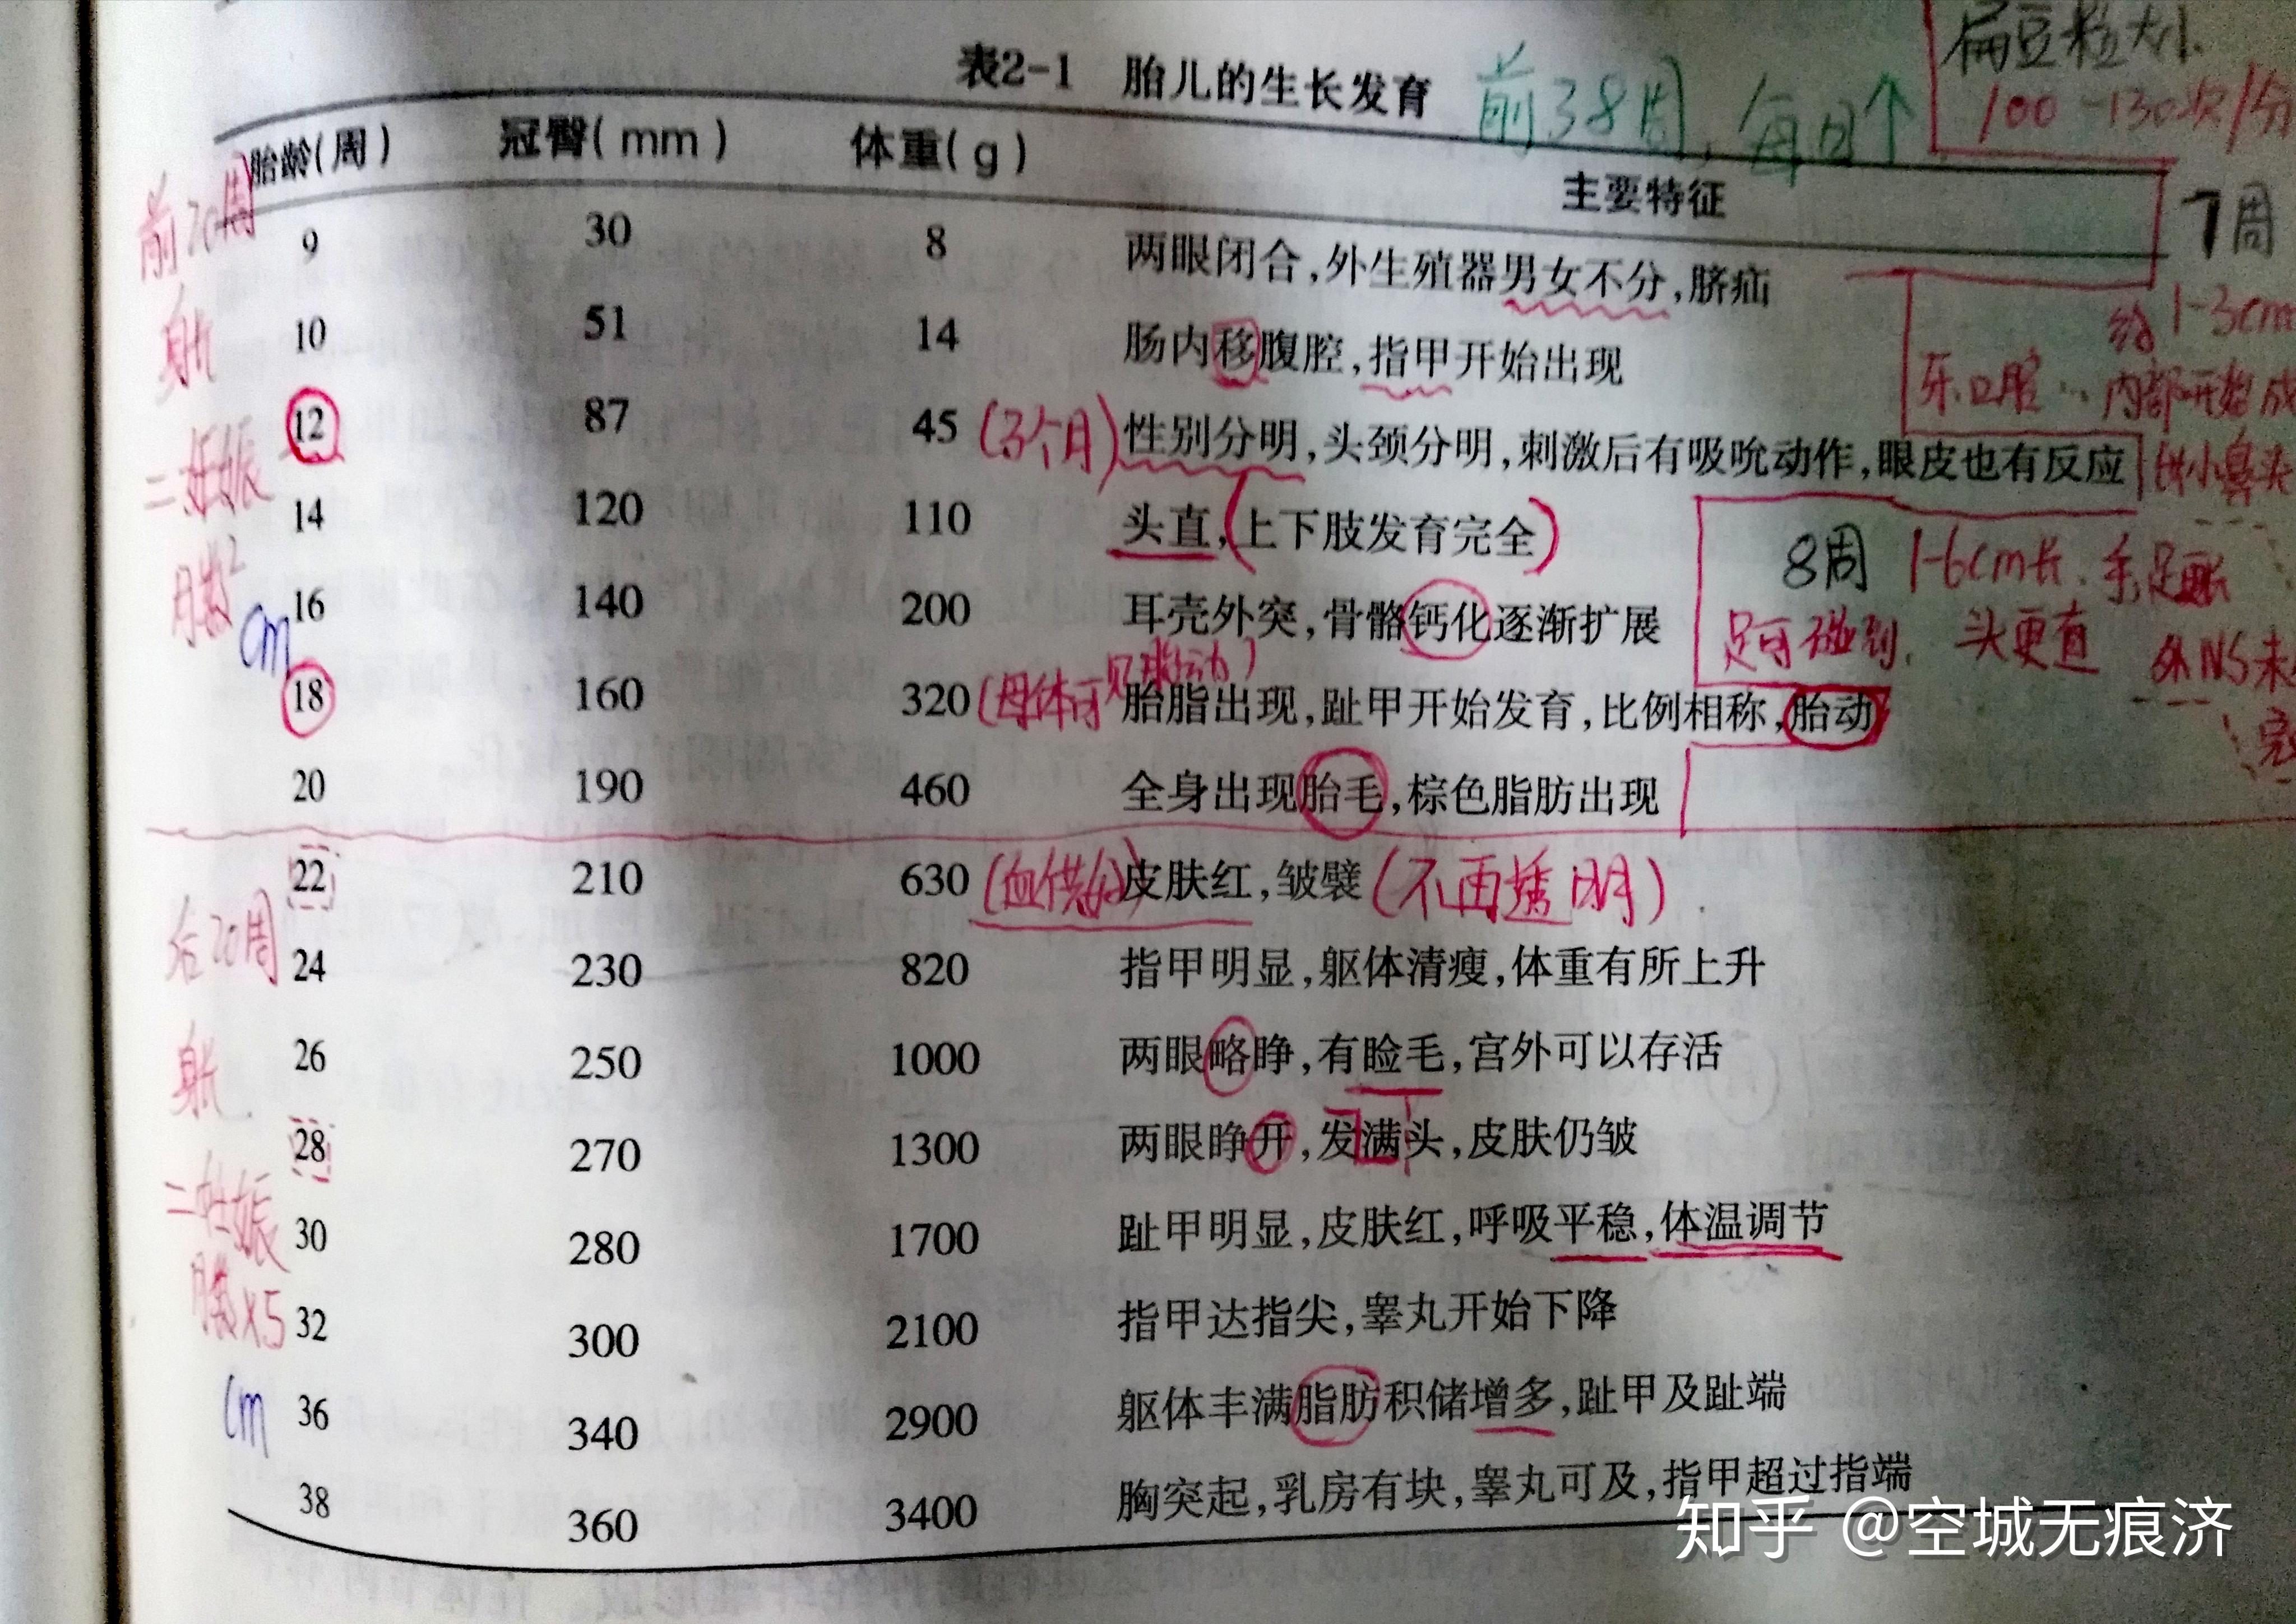 扁豆粒大小
100-130次/分
表2-1 胎儿的生长发育
前38周,每日个
胎龄(周) 冠臀(mm) 体重(g) 主要特征
7周
前20周
9 30 8 两眼闭合,外生殖器男女不分,脐疝
约1-3cm
身长
10 51 14 肠内移腹腔,指甲开始出现
牙.口腔…内部开始成
12 87 45 (3个月)性别分明,头颈分明,刺激后有吸吮动作,眼皮也有反应
小鼻头
=妊娠
14 120 110 头直,(上下肢发育完全)
8周 1-6cm长.手足
月数²
cm
16 140 200 耳壳外突,骨骼钙化逐渐扩展
足可碰到.头更直
外NS未
18 160 320 (母体可 胎脂出现,趾甲开始发育,比例相称,胎动
20 190 460 全身出现胎毛,棕色脂肪出现
22 210 630 (血供 皮肤红,皱襞(不再透明)
后20周
24 230 820 指甲明显,躯体清瘦,体重有所上升
身长
26 250 1000 两眼略睁,有睑毛,宫外可以存活
28 270 1300 两眼睁开,发满头,皮肤仍皱
=妊娠
30 280 1700 趾甲明显,皮肤红,呼吸平稳,体温调节
月数×5
32 300 2100 指甲达指尖,睾丸开始下降
cm
36 340 2900 躯体丰满脂肪积储增多,趾甲及趾端
38 360 3400 胸突起,乳房有块,睾丸可及,指甲超过指端
知乎 @空城无痕济